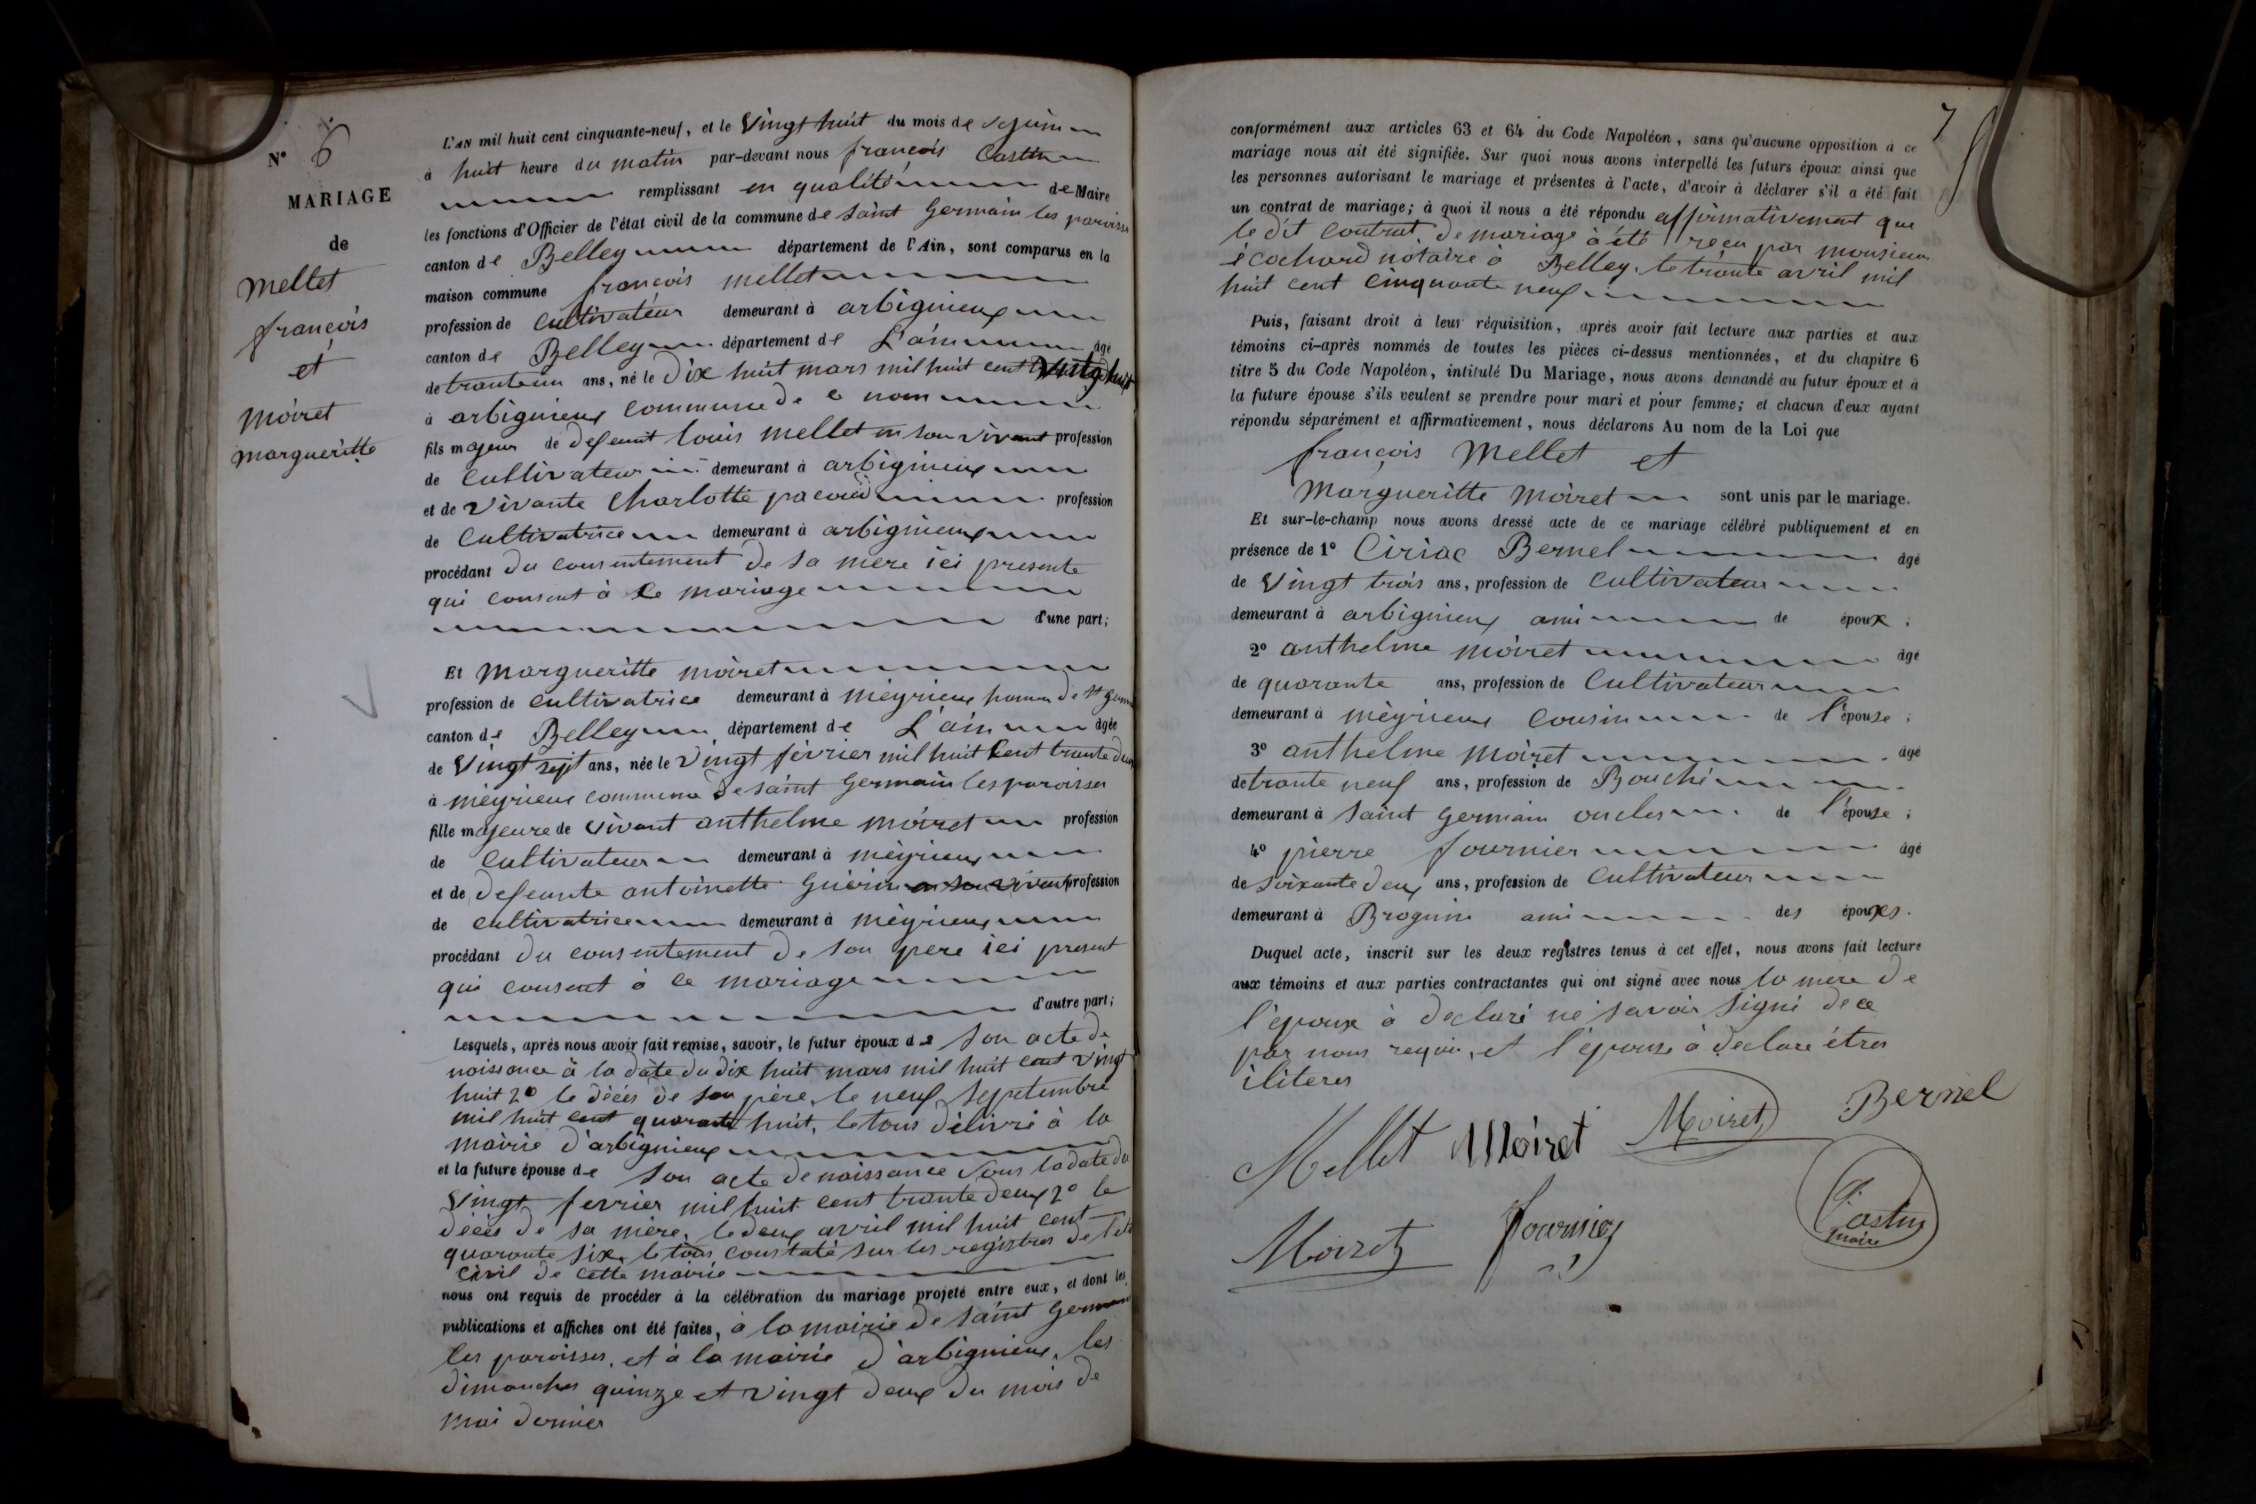 N° 6
MARIAGE
de
Mellet
françois
et
Moiret
margueritte
L'AN mil huit cent cinquante-neuf, et le Vingt huit du mois de
à huit heure du matin par-devant nous françois Castin
remplissant en qualité de Maire
les fonctions d'Officier de l'état civil de la commune de saint Germain les paroisse
canton de Belley département de l'Ain, sont comparus en la
maison commune françois mellet
profession de cultivateur demeurant à arbignieux
canton de Belley département de L'ain âgé
de trante un ans, né le dix huit mars mil huit cent vingt huit
à arbignieux commune de ce nom
fils majeur de defeunt louis mellet en son vivant profession
de cultivateur demeurant à arbignieux
et de vivante Charlotte pacoud profession
de cultivatrice demeurant à arbignieux
procédant du consentement de sa mere ici presente
qui consent à ce mariage
d'une part;
Et Margueritte moiret
profession de cultivatrice demeurant à mèyrieux de St
canton de Belley département de L'ain âgée
de Vingt sept ans, née le vingt février mil huit cent trante deux
à mèyrieux commune de saint Germain les paroisses
fille majeure de vivant anthelme moiret profession
de cultivateur demeurant à mèyrieux
et de defeunte antoinette Guérin en son vivant profession
de cultivatrice demeurant à mèyrieux
procédant du consentement de son pere ici present
qui consent à ce mariage
d'autre part;
Lesquels, après nous avoir fait remise, savoir, le futur époux de son acte de
naissance à la date du dix huit mars mil huit cent vingt
huit 2° le décés de son père, le neuf septembre
mil huit cent quarante huit, le tous délivré à la
mairie d'arbignieux
et la future épouse de son acte de naissance sous la date du
vingt fevrier mil huit cent trante deux 2° le
décés de sa mère, le deux avril mil huit cent
quarante six, le tous constaté sur les registres de
civil de cette mairie
nous ont requis de procéder à la célébration du mariage projeté entre eux, et dont les
publications et affiches ont été faites, à la mairie de saint Germain
les paroisses, et à la mairie d'arbignieux, les
dimanches quinze et vingt deux du mois de
mai dernier
7
conformément aux articles 63 et 64 du Code Napoléon, sans qu'aucune opposition à ce
mariage nous ait été signifiée. Sur quoi nous avons interpellé les futurs époux ainsi que
les personnes autorisant le mariage et présentes à l'acte, d'avoir à déclarer s'il a été fait
un contrat de mariage; à quoi il nous a été répondu affirmativement que
le dit contrat de mariage à été reçu par monsieur
écochard notaire à Belley, le trante avril mil
huit cent cinquante neuf
Puis, faisant droit à leur réquisition, après avoir fait lecture aux parties et aux
témoins ci-après nommés de toutes les pièces ci-dessus mentionnées, et du chapitre 6
titre 5 du Code Napoléon, intitulé Du Mariage, nous avons demandé au futur époux et à
la future épouse s'ils veulent se prendre pour mari et pour femme; et chacun d'eux ayant
répondu séparément et affirmativement, nous déclarons Au nom de la Loi que
françois Mellet et
Margueritte moiret sont unis par le mariage.
Et sur-le-champ nous avons dressé acte de ce mariage célébré publiquement et en
présence de 1° Ciriac Bernel âgé
de Vingt trois ans, profession de cultivateur
demeurant à arbignieux ami de époux;
2° anthelme moiret âgé
de quarante ans, profession de Cultivateur
demeurant à mèyrieux cousin de l'épouse;
3° anthelme moiret âgé
de trante neuf ans, profession de Bouché
demeurant à saint Germain oncles de l'épouse;
4° pierre fournier âgé
de soixante deux ans, profession de Cultivateur
demeurant à Brognin ami des époux.
Duquel acte, inscrit sur les deux registres tenus à cet effet, nous avons fait lecture
aux témoins et aux parties contractantes qui ont signé avec nous la mere de
l'epoux à declaré ne savoir signé de ce
par nous requis, et l'épouse à declaré étres
iliteres
Mellet Moiret Moiret Bernel
Moiret fournier Castin
maire